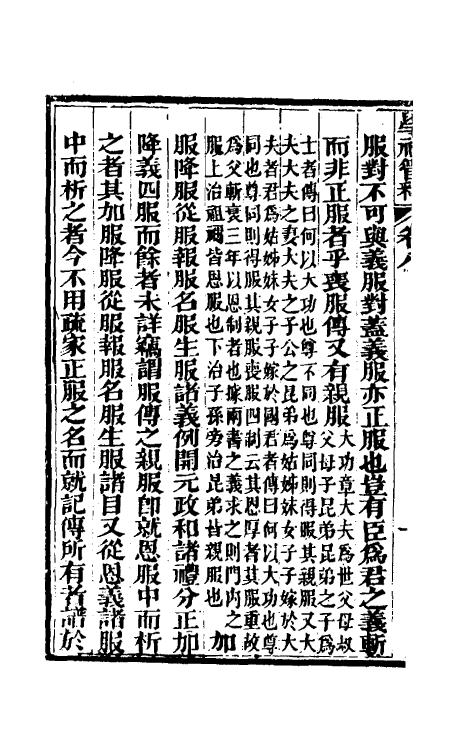 學禮管釋 卷八
服對不可與義服對蓋義服亦正服也豈有臣爲君之義斬
而非正服者乎喪服傳又有親服大功章大夫爲世父母叔
父母子昆弟昆弟之子爲
士者傳曰何以大功也尊不同也尊同則得服其親服又大
夫大夫之妻大夫之子公之昆弟爲姑姊妹女子子嫁於大
夫者君爲姑姊妹女子子嫁於國君者傳曰何以大功也尊
同也尊同則得服其親服喪服四制云其恩厚者其服重故
爲父斬衰三年以恩制者也據兩書之義求之則門內之
服上治祖禰皆恩服也下治子孫旁治昆弟皆親服也 加
服降服從服報服名服生服諸義例開元政和諸禮分正加
降義四服而餘者未詳竊謂服傳之親服卽就恩服中而析
之者其加服降服從服報服名服生服諸目又從恩義諸服
中而析之者今不用疏家正服之名而就記傳所有者譜於